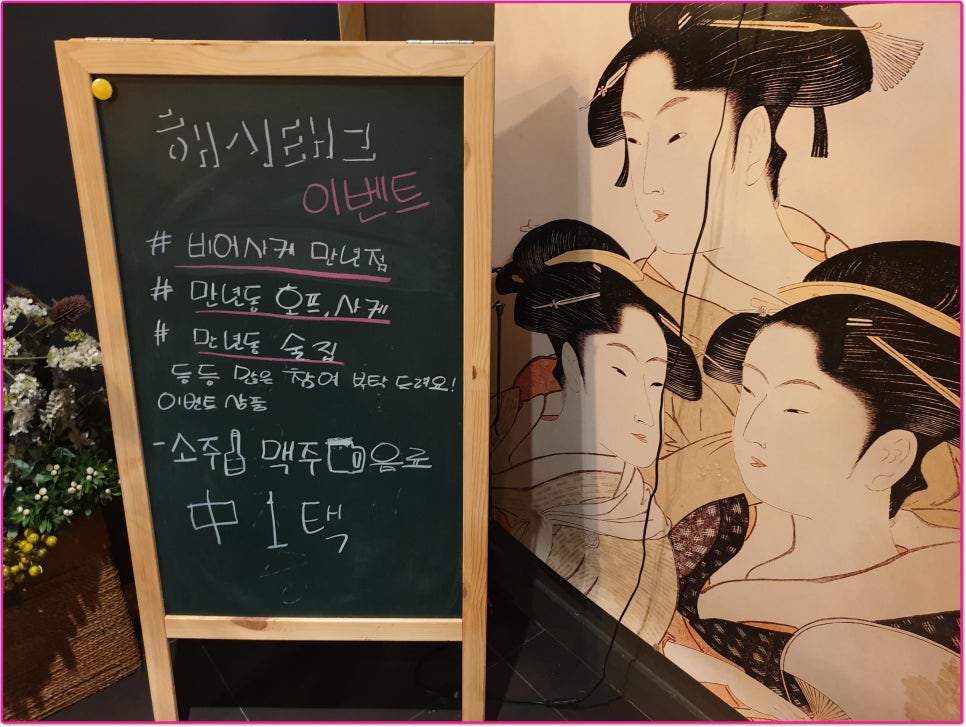 해시태그
이벤트
# 비어사케 만년점
# 만년동 호프,사케
# 만년동 술집
등등 많은 참여 부탁드려요!
이벤트 상품
- 소주 맥주 음료
中 1택